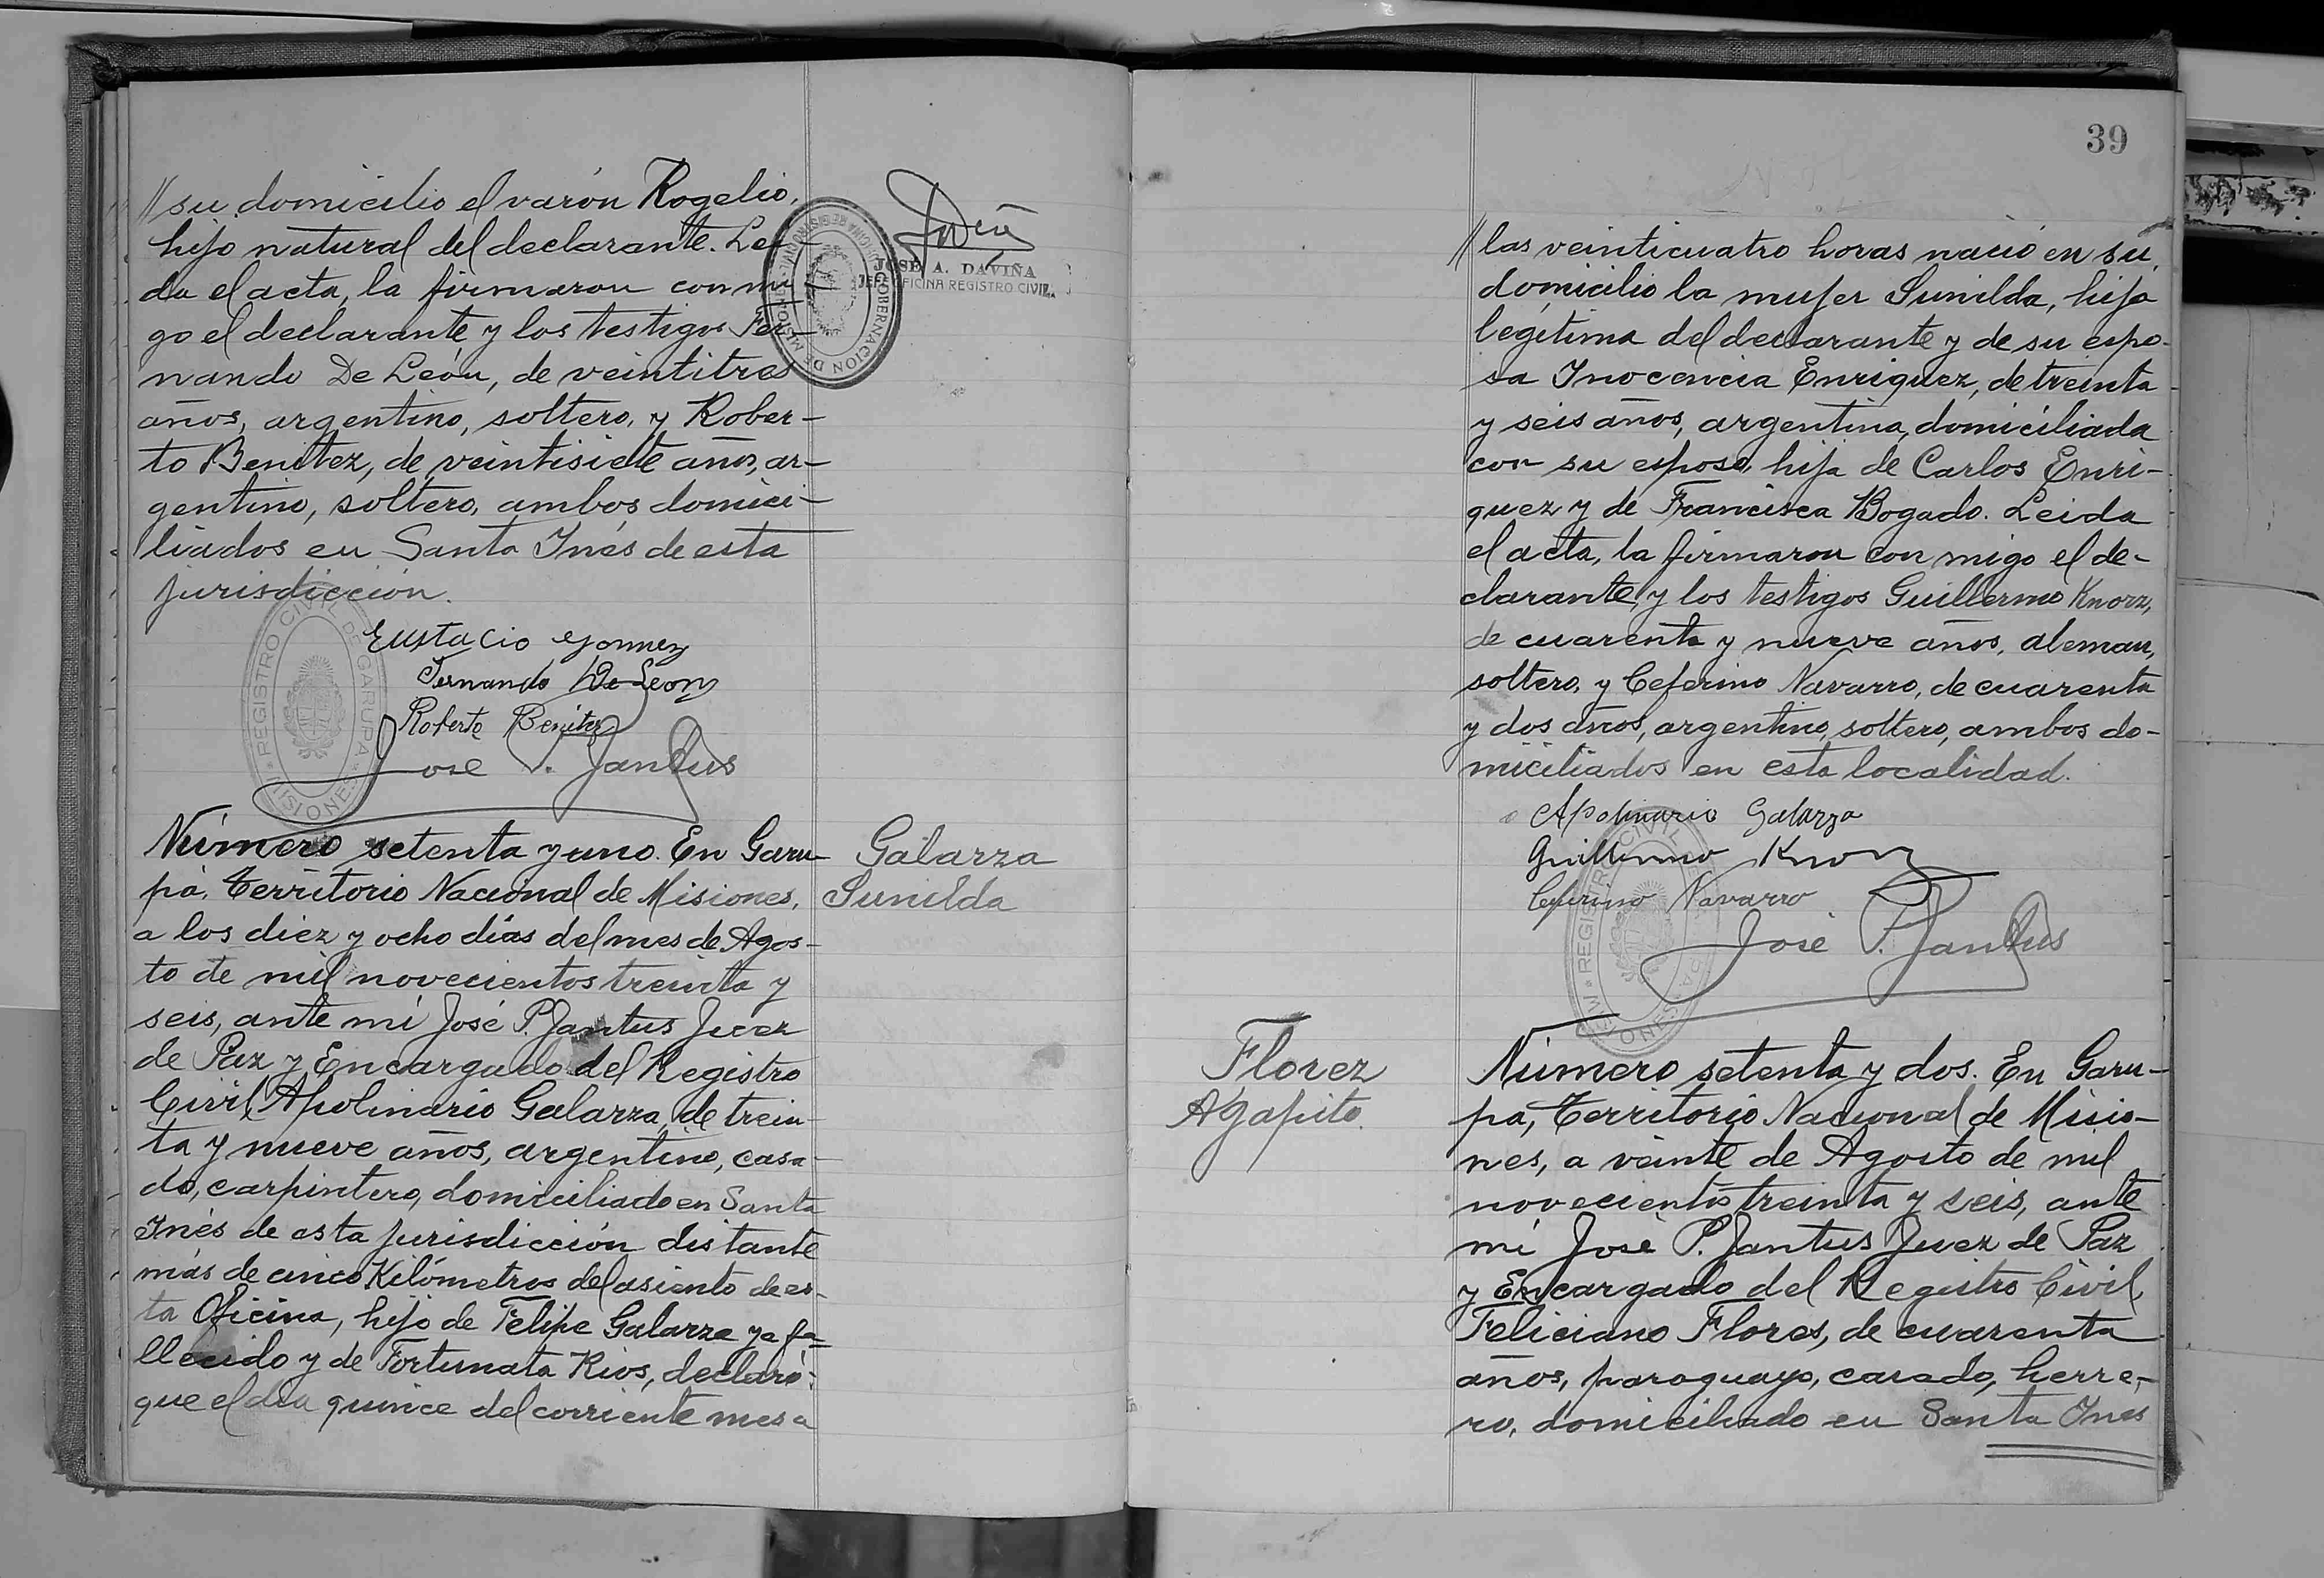 // su domicilio el varón Rogelio,
hijo natural del declarante. Lei-
da el acta, la firmaron con mi-
go el declarante y los testigos Fer-
nando De León, de veintitres
años, argentino, soltero, y Rober-
to Benitez, de veintisiete años, ar-
gentino, soltero, ambos domici-
liados en Santa Inés de esta
jurisdicción.
Eustacio Gomez
Fernando De Leon
Roberto Benitez
José P. Jantus
REGISTRO CIVIL DE GARUPA
MISIONES
JOSE A. DAVIÑA
JEFE OFICINA REGISTRO CIVIL
GOBERNACION DE MISIONES
Galarza
Sunilda
Número setenta y uno. En Garu-
pá, Territorio Nacional de Misiones,
a los diez y ocho días del mes de Agos-
to de mil novecientos treinta y
seis, ante mí José P. Jantus Juez
de Paz y Encargado del Registro
Civil, Apolinario Galarza, de trein-
ta y nueve años, argentino, casa-
do, carpintero, domiciliado en Santa
Inés de esta jurisdicción distante
más de cinco Kilómetros del asiento de es-
ta Oficina, hijo de Felipe Galarza ya fa-
llecido y de Fortunata Rios, declaró:
que el día quince del corriente mes a
39
// las veinticuatro horas nació en su
domicilio la mujer Sunilda, hija
legítima del declarante y de su espo-
sa Inocencia Enriquez, de treinta
y seis años, argentina, domiciliada
con su esposo, hija de Carlos Enri-
quez y de Francisca Bogado. Leida
el acta, la firmaron con migo el de-
clarante, y los testigos Guillermo Knorz,
de cuarenta y nueve años, aleman,
soltero, y Ceferino Navarro, de cuarenta
y dos años, argentino, soltero, ambos do-
miciliados en esta localidad.
Apolinario Galarza
Guillermo Knorz
Ceferino Navarro
José P. Jantus
REGISTRO CIVIL DE GARUPA
MISIONES
Florez
Agapito.
Número setenta y dos. En Garu-
pa, Territorio Nacional de Misio-
nes, a veinte de Agosto de mil
novecientos treinta y seis, ante
mí José P. Jantus Juez de Paz
y Encargado del Registro Civil,
Feliciano Flores, de cuarenta
años, paraguayo, casado, herre-
ro, domiciliado en Santa Ines